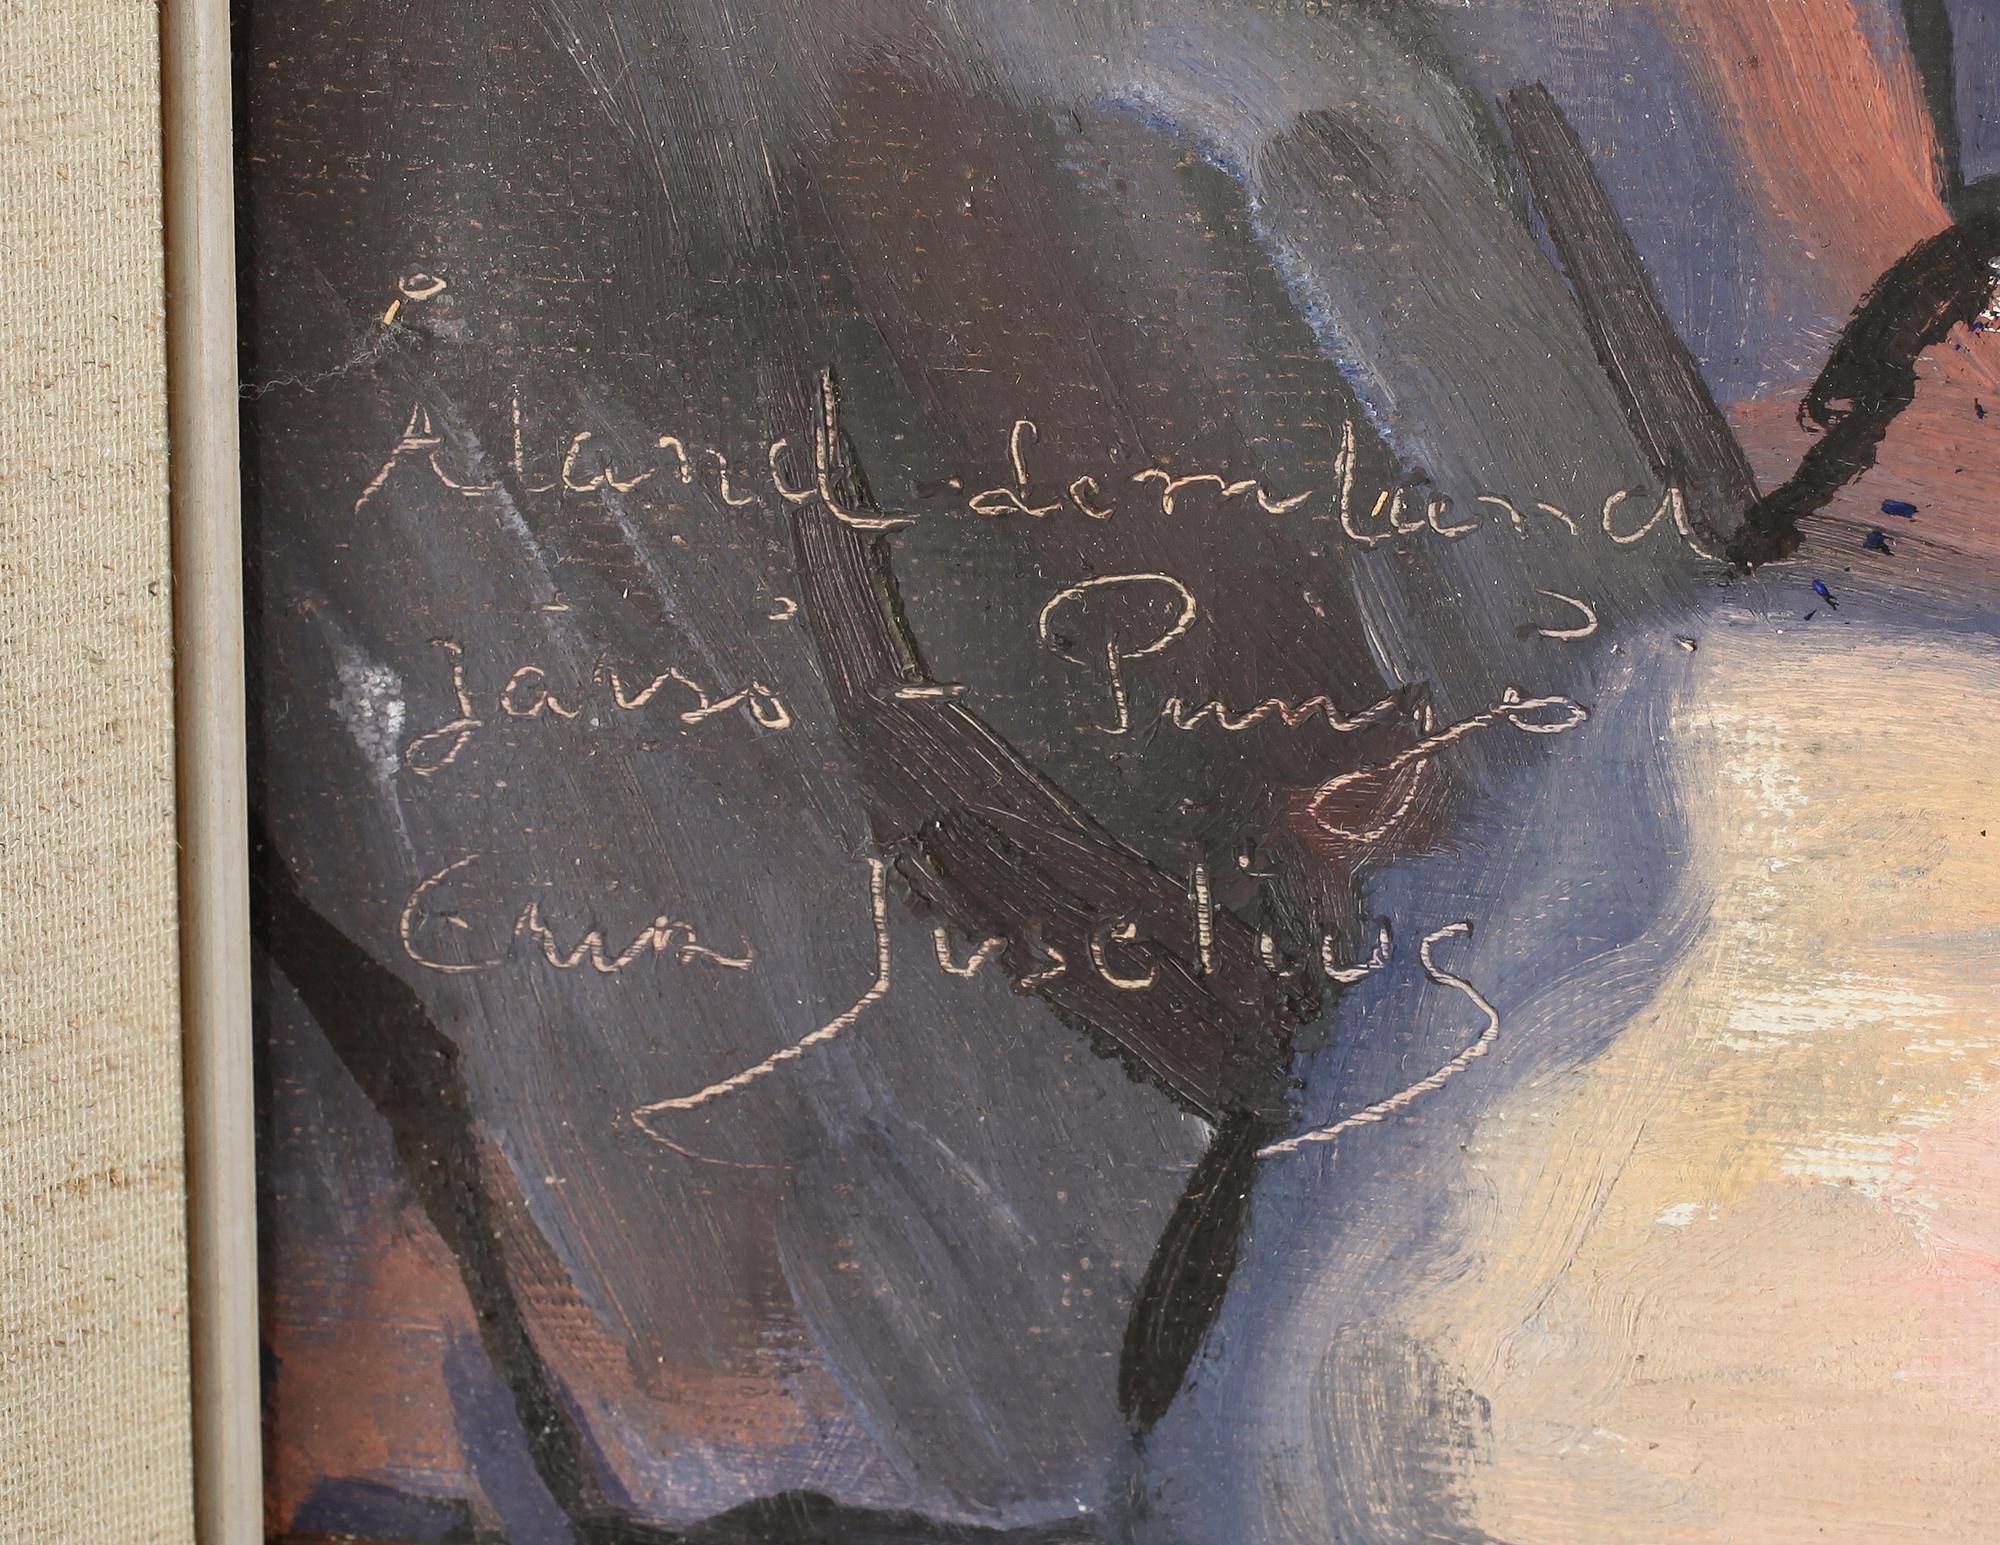 Åland-Lemland
Järsö - Pungö
Erna Juselius